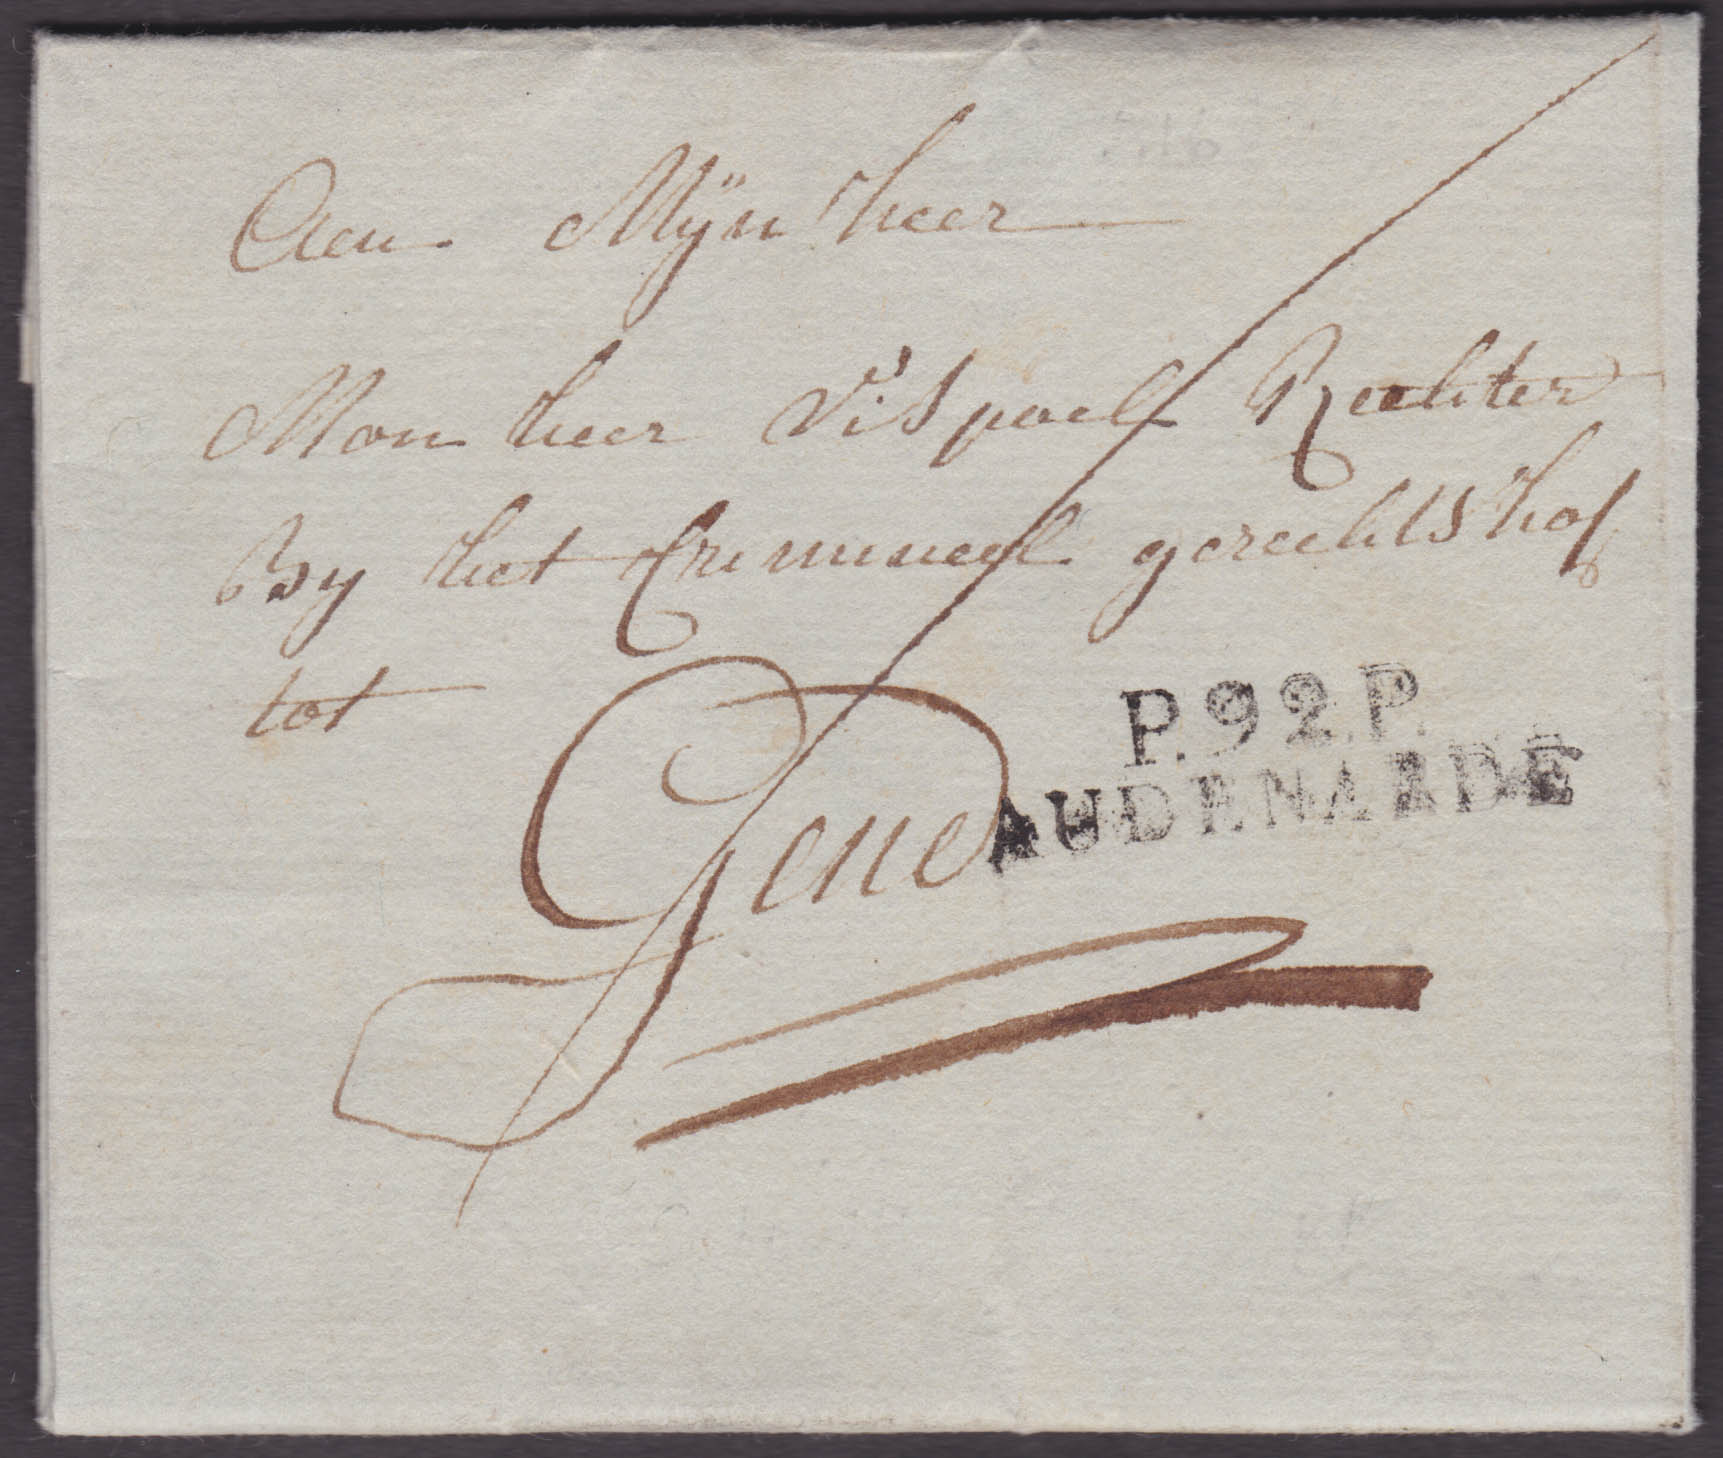 Aen Mÿn heer
Mon heer Vispoel Rechter
By het Crimineel gerechtshof
tot
Gend
P.92.P.
AUDENARDE